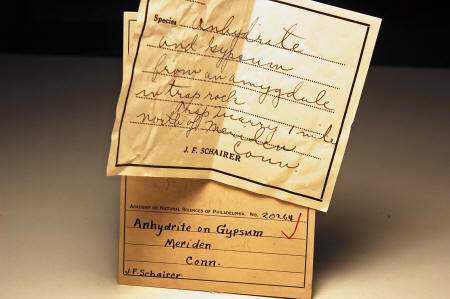 Species Anhydrite
and Gypsum
from an amygdule
in trap rock
Trap quarry 1 mile
north of Meriden
Conn.
J. F. SCHAIRER
ACADEMY OF NATURAL SCIENCES OF PHILADELPHIA, No. 20264
Anhydrite on Gypsum
Meriden
Conn.
J.F. Schairer